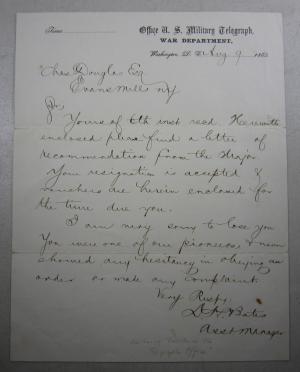 Time
Office U. S. Military Telegraph,
WAR DEPARTMENT,
Washington, D. C. Aug 9 186
Chas. Douglas Esq
Evans Mills NY
Sir
Yours of 6th inst recd. Herewith
enclosed please find a letter of
recommendation from the Major
Your resignation is accepted &
vouchers are herein enclosed for
the time due you.
I am very sorry to lose you
You were one of our pioneers & never
showed any hesitancy in obeying an
order or made any complaint.
Very Respy
D. H. Bates
Asst Manager